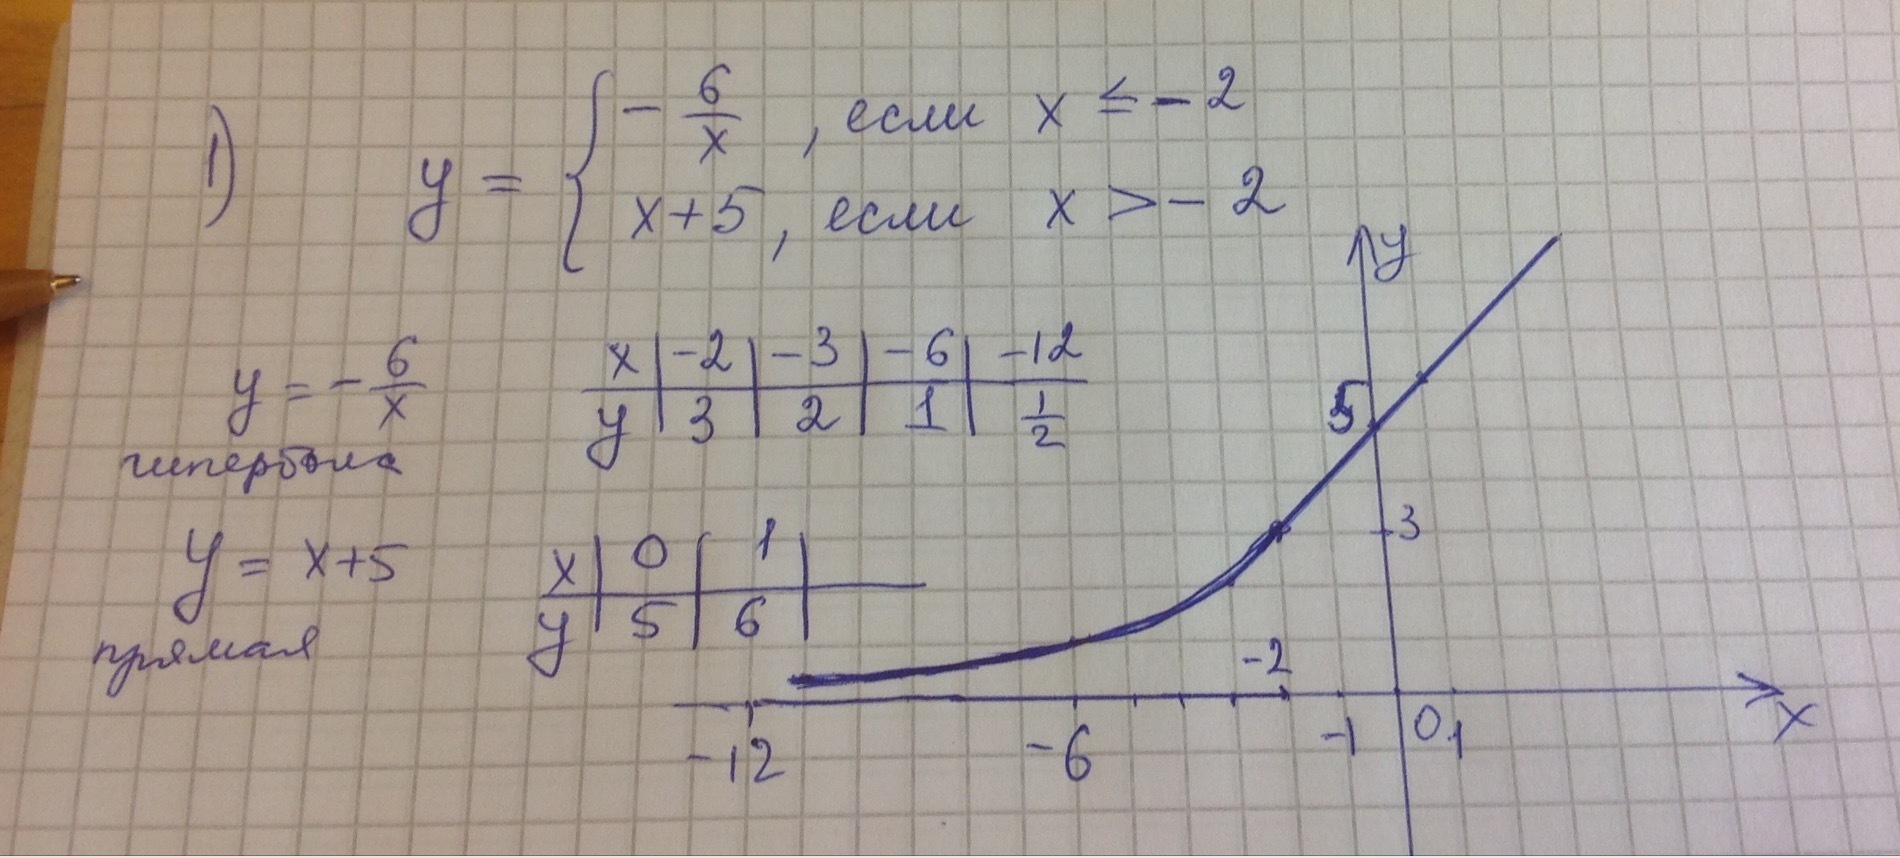 1) y = { - 6/x , если x ≤ - 2
x+5 , если x > - 2
y = - 6/x
гипербола
x | -2 | -3 | -6 | -12
y | 3 | 2 | 1 | 1/2
y = x+5
прямая
x | 0 | 1 |
y | 5 | 6 |
y
5
3
-2
-12 -6 -1 0 1 x